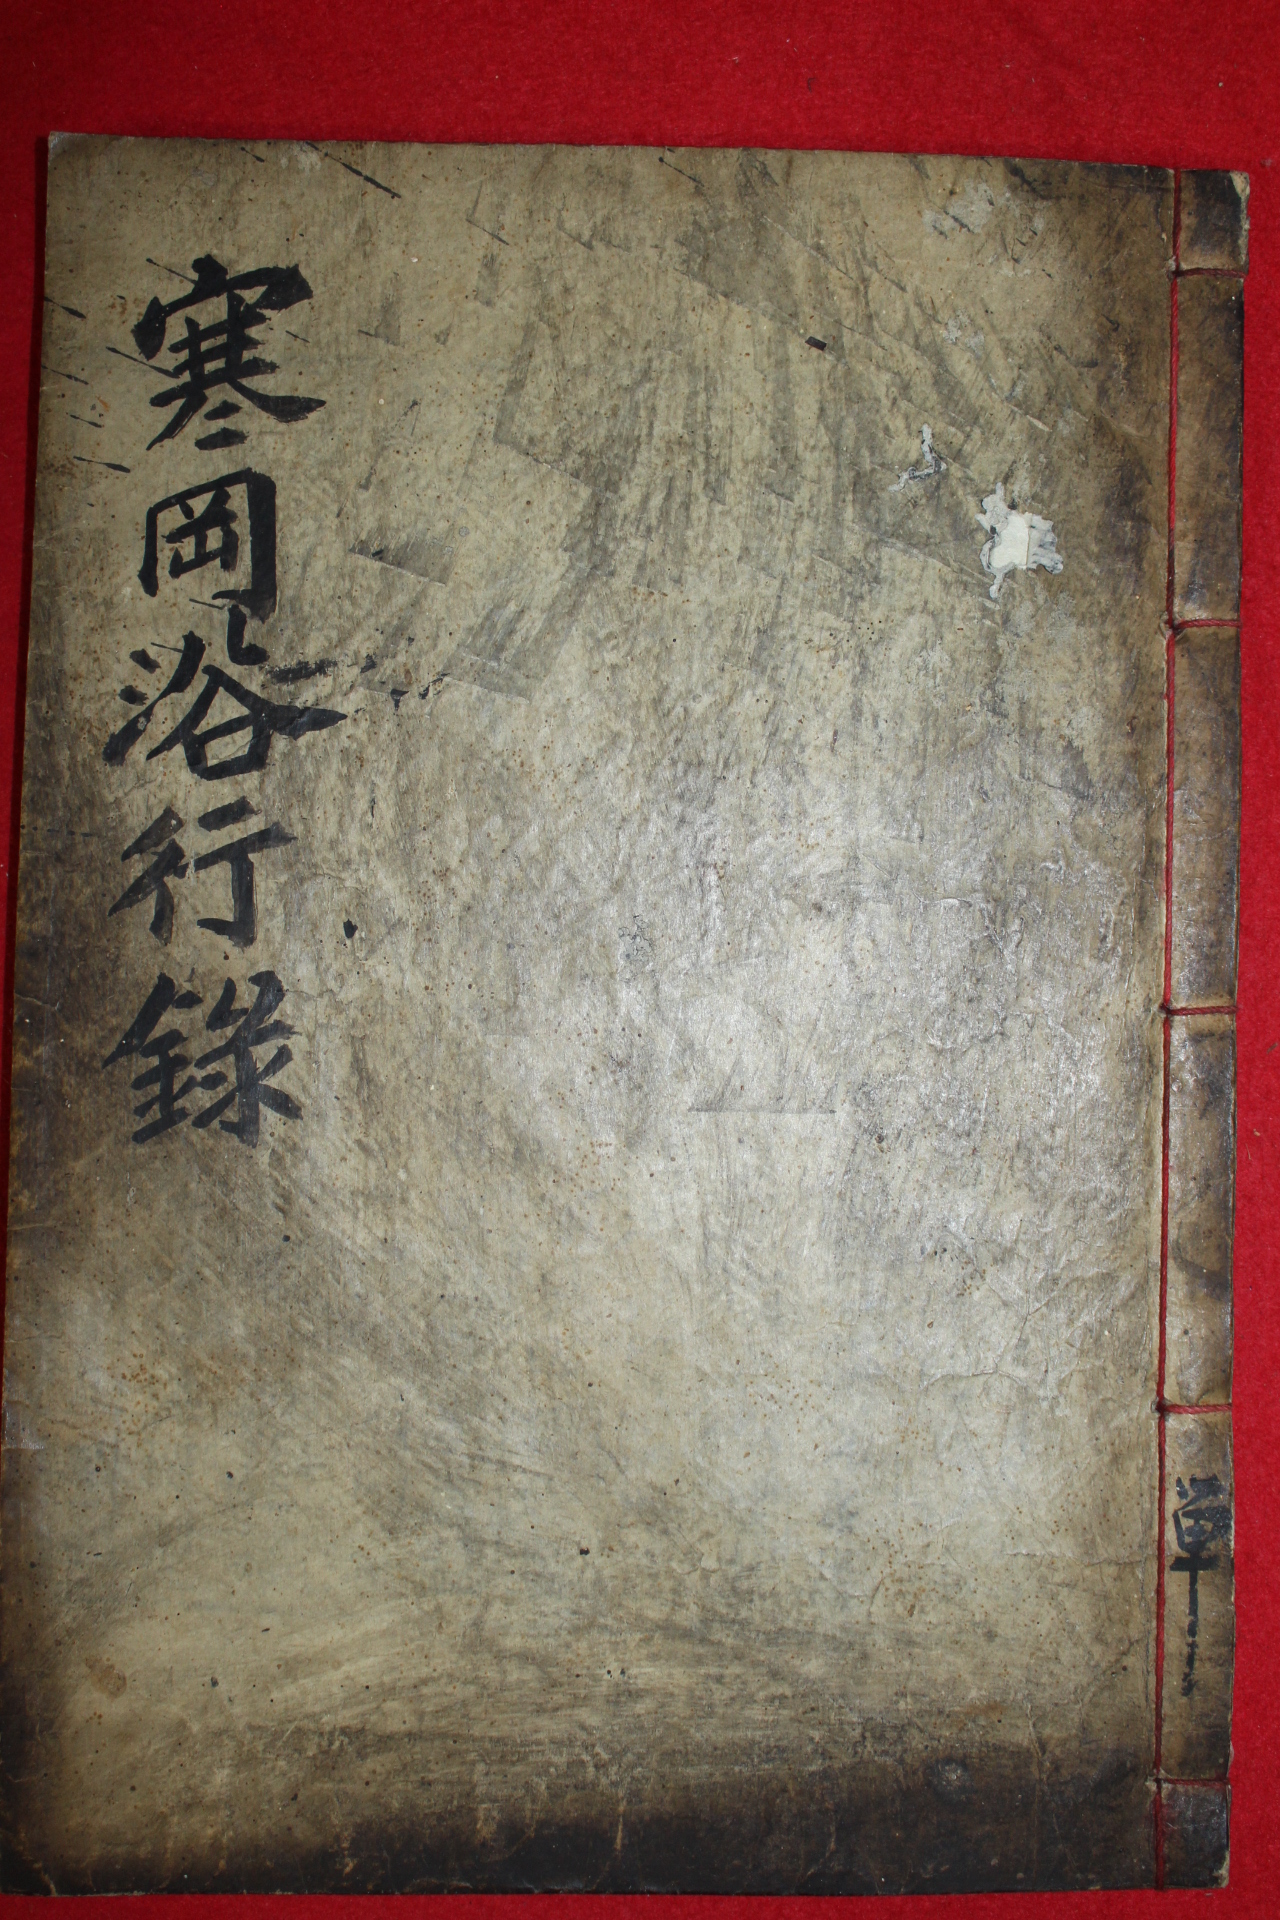 寒岡浴行錄
單